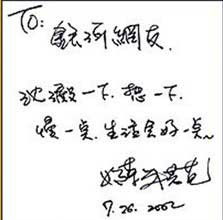 To: 銀河網友
沈澱一下. 想一下.
慢一点. 生活会好一点~
7.26.2002